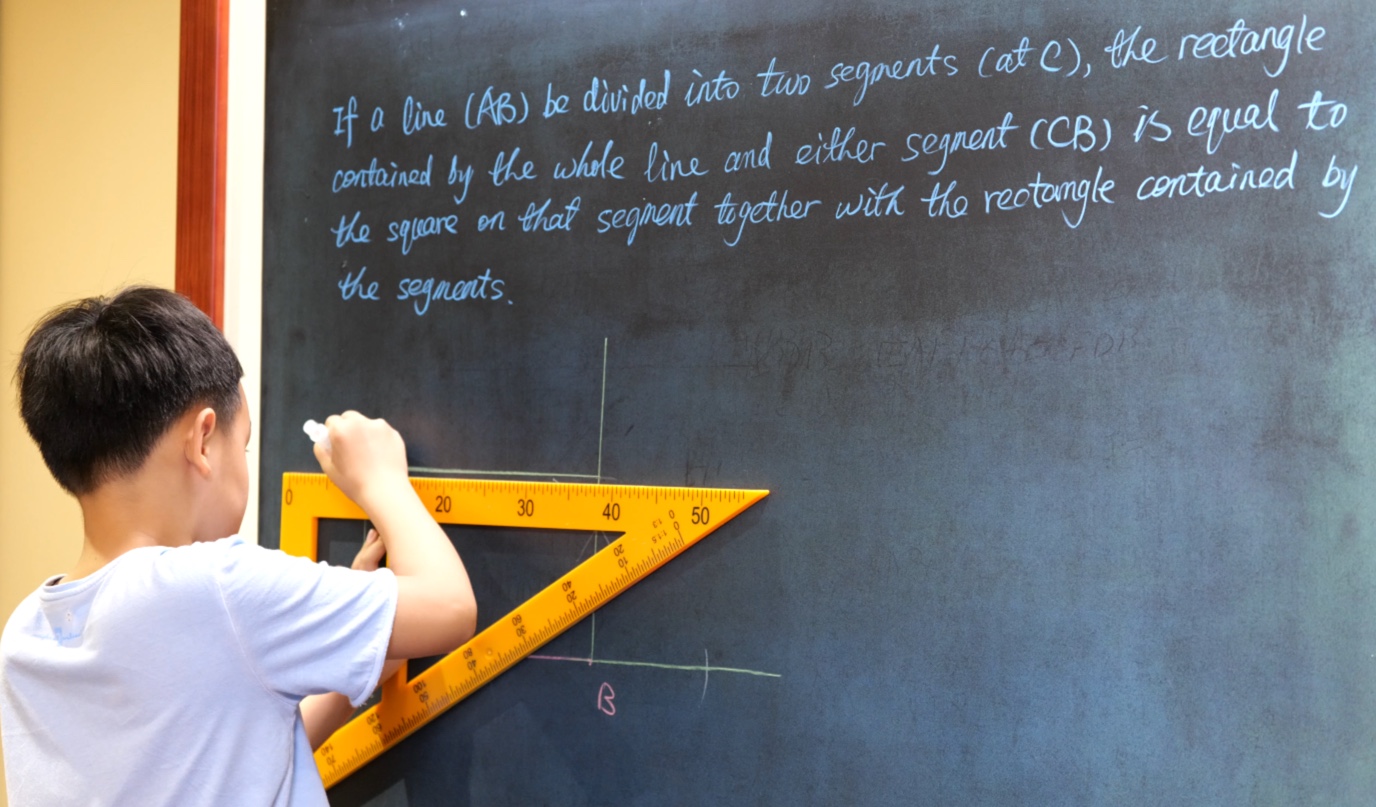 If a line (AB) be divided into two segments (at C), the rectangle
contained by the whole line and either segment (CB) is equal to
the square on that segment together with the rectangle contained by
the segments.
0 20 30 40 50
B